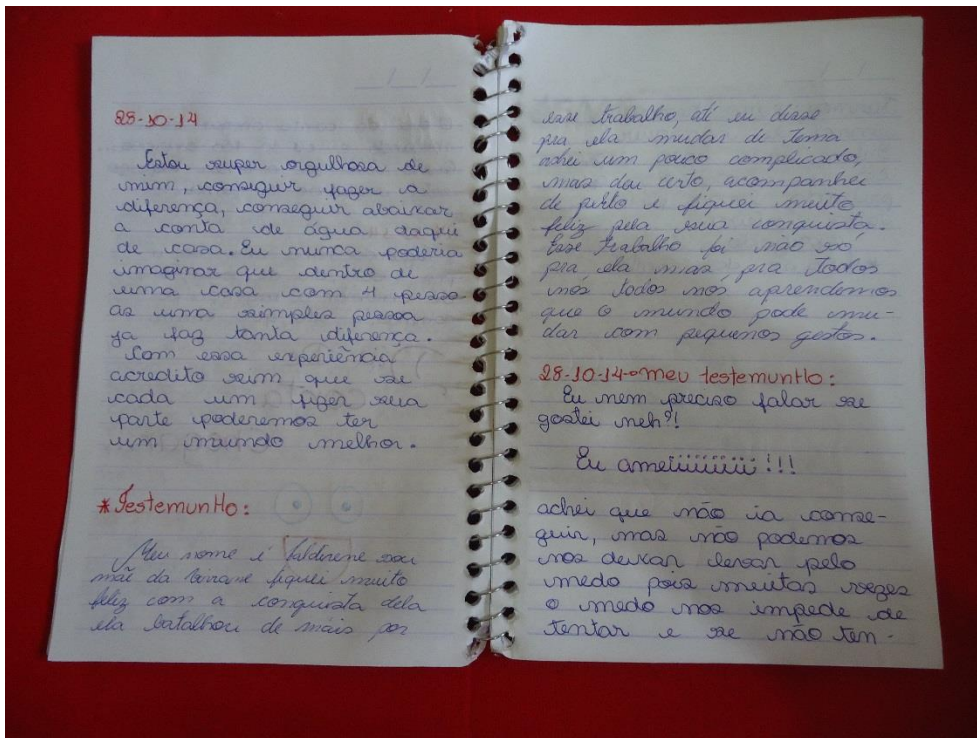 28-10-14
Estou super orgulhosa de
mim, conseguir fazer a
diferença, conseguir abaixar
a conta de água daqui
de casa. Eu nunca poderia
imaginar que dentro de
uma casa com 4 pesso
as uma simples pessoa
ja faz tanta diferença.
Com essa experiência
acredito sim que se
cada um fizer sua
parte poderemos ter
um mundo melhor.
* Testemunho:
Meu nome é Valdirene sou
mãe da fiquei muito
feliz com a conquista dela
ela batalhou de mais por
esse trabalho, até eu disse
pra ela mudar de tema
achei um pouco complicado,
mas deu certo, acompanhei
de perto e fiquei muito
feliz pela sua conquista.
Esse trabalho foi não só
pra ela mas pra todos
nos todos nos aprendemos
que o mundo pode mu-
dar com pequenos gestos.
28-10-14 meu testemunho:
Eu nem preciso falar se
gostei neh?!
Eu ameiiiiiiiii!!!
achei que não ia conse-
guir, mas não podemos
nos deixar levar pelo
medo pois muitas vezes
o medo nos impede de
tentar e se não ten-